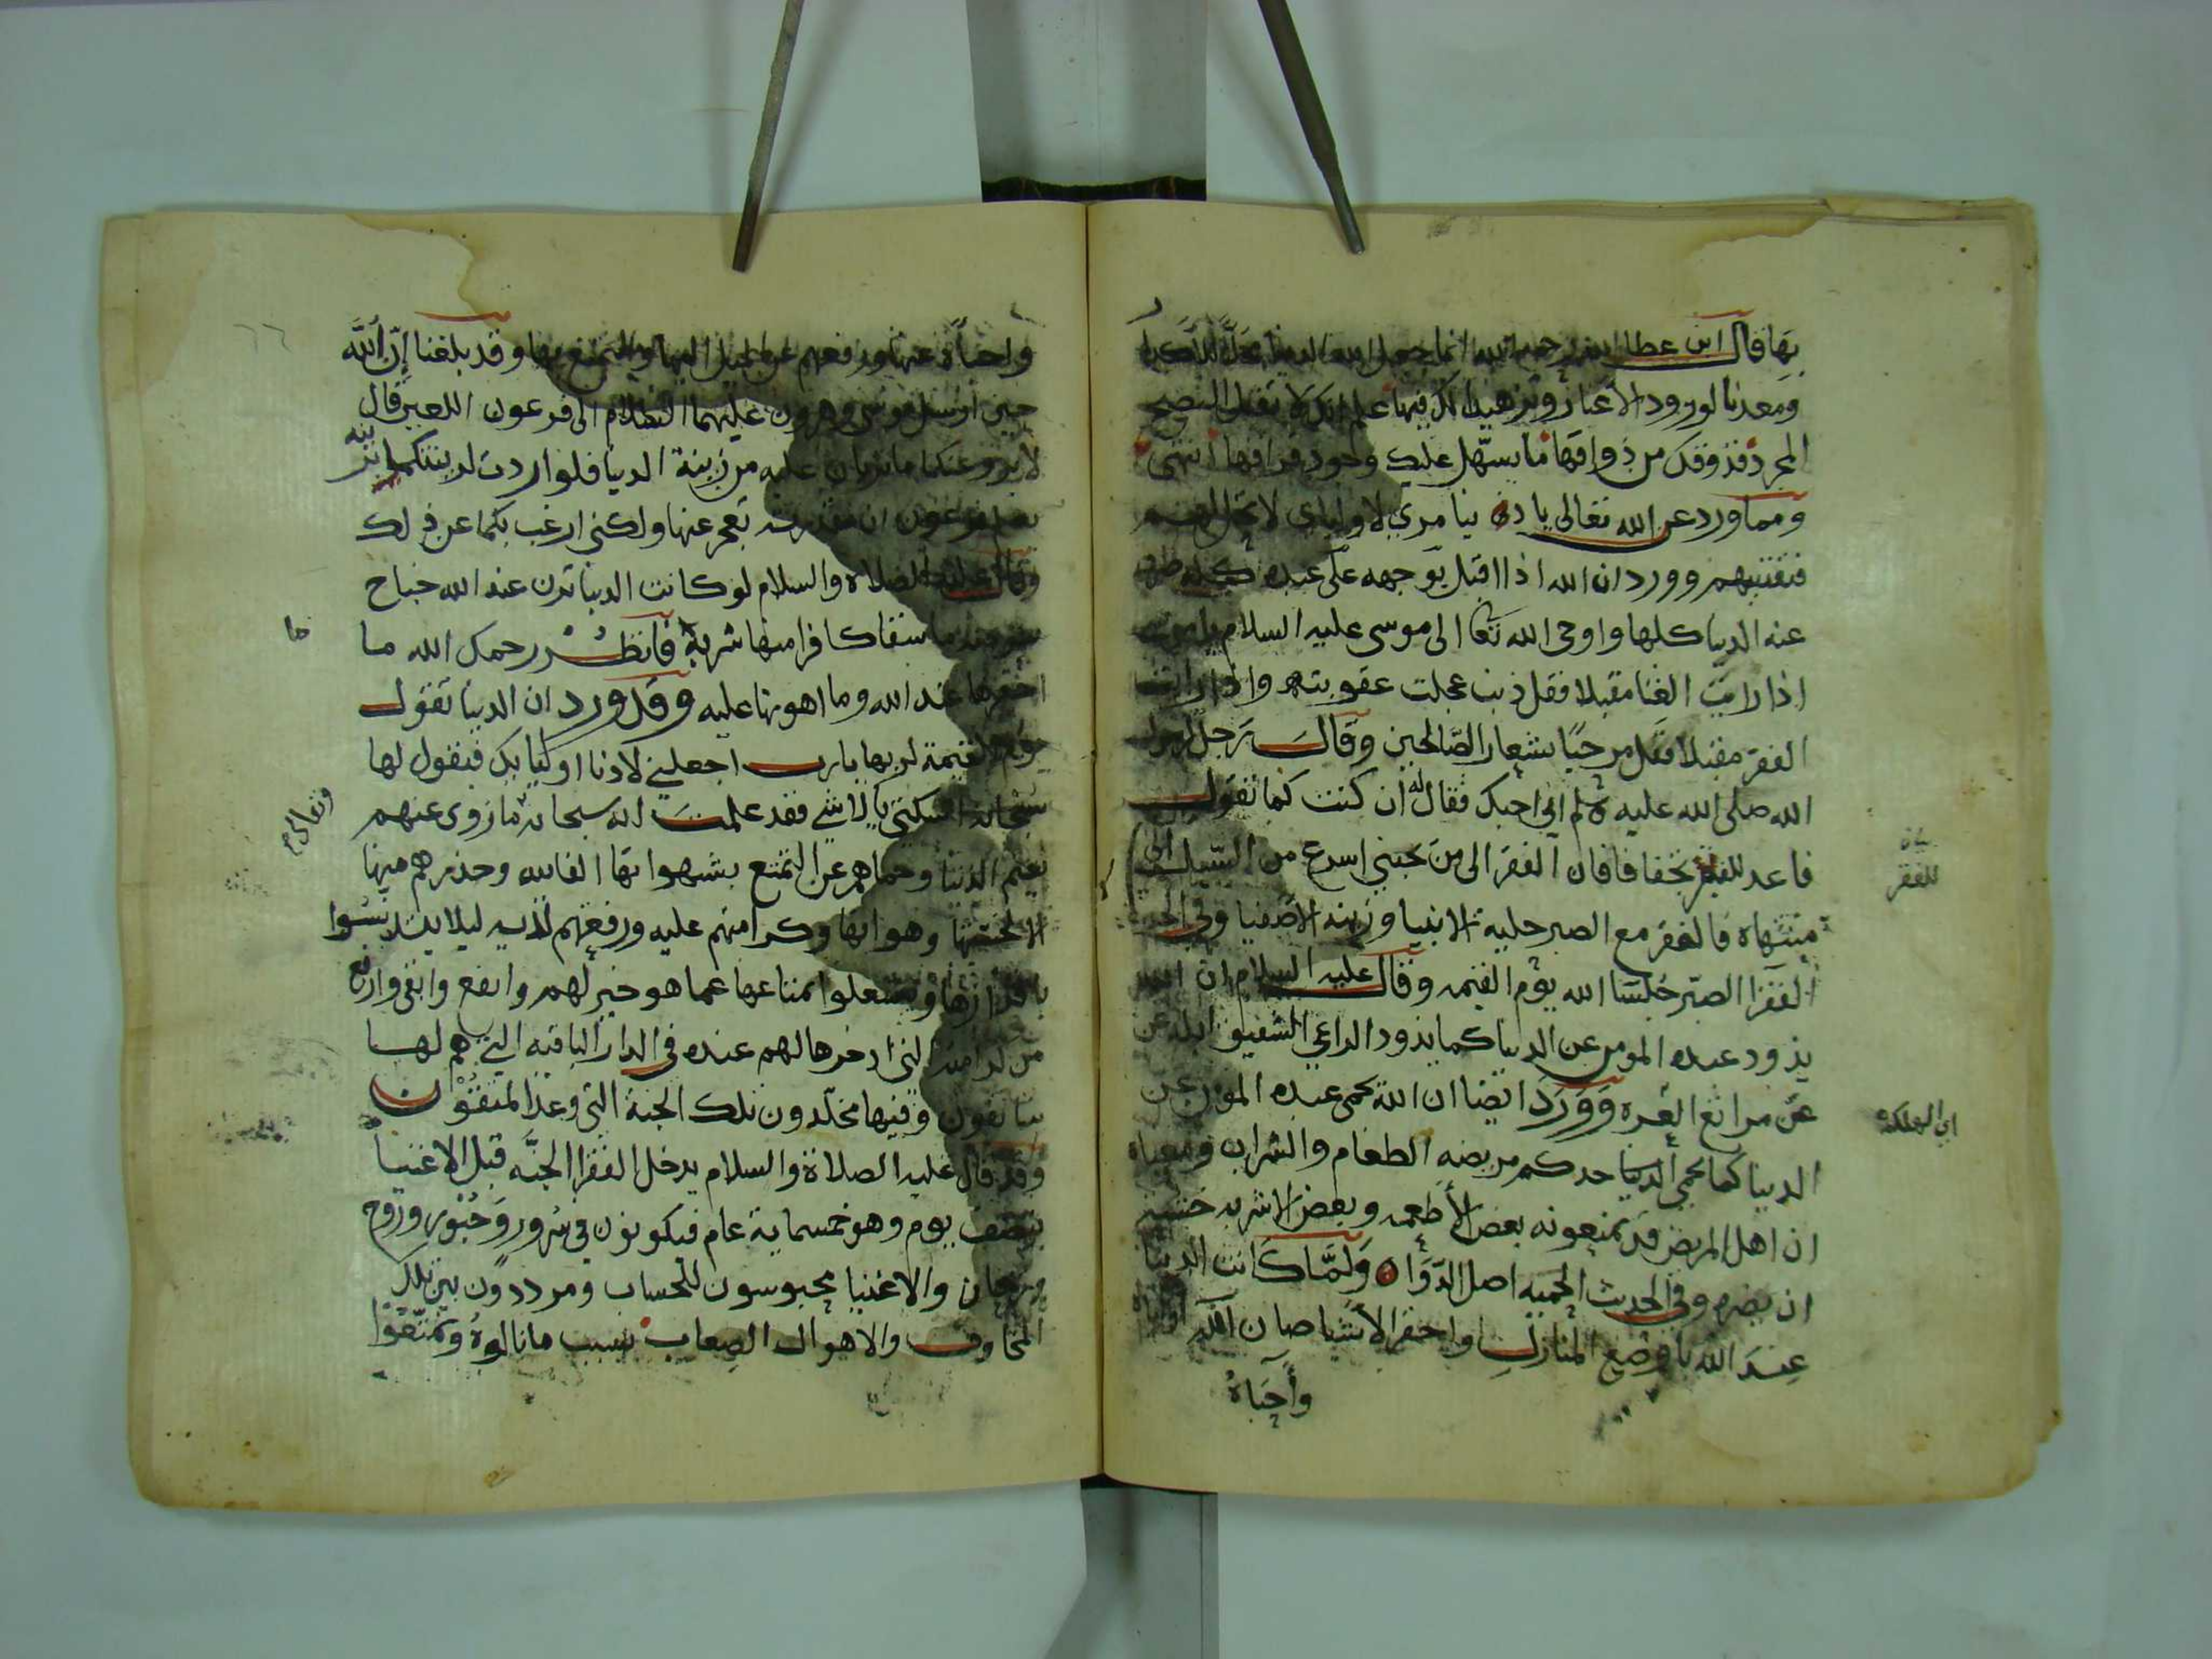 بها قال ابن عطا الله رحمه الله انما جعل الله الدنيا محلا للاكدار
ومعدنا لورود الاغيار وتزهيدا لك فيها علم انك لا تقبل النصح
المجرد فذوقك من ذواقها ما يسهل عليك وجود فراقها انتهى
ومما ورد عن الله تعالى يا دنيا مري لاوليايي لا تحلي لهم
فتفتنيهم وورد ان الله اذا اقبل بوجهه على عبده
عنه الدنيا كلها واوحى الله تعا الى موسى عليه السلام يا موسى
اذا رايت الغنا مقبلا فقل ذنب عجلت عقوبته واذا رايت
الفقر مقبلا فقل مرحبا بشعار الصالحين وقال رجل لرسول
الله صلى الله عليه وسلم اني احبك فقال له ان كنت كما تقول
فاعد للفقر تجفافا فان الفقر الى من يحبني اسرع من السيل الى
منتهاه فالفقر مع الصبر حلية الانبيا وزينة الاصفيا وفي الخبر
الفقرا الصبر جلسا الله يوم القيمه وقال عليه السلام ان الله
يذود عبده المومن عن الدنيا كما يذود الراعي الشفيق ابله عن
عن مراتع العره وورد ايضا ان الله يحمي عبده المومن عن
الدنيا كما يحمي احدكم مريضه الطعام والشراب ومعناه
ان اهل المريض قد يمنعونه بعض الاطعمه وبعض الاشربه خشية
ان يضره وفي الحديث الحميه اصل الدوا ولما كانت الدنيا
عند الله باوضع المنازل واحقر الاشيا صان الله
واحباه
للفقر
اي الهلكة
واحباه عنها ورفعهم عن الميل اليها والتمتع بها وقد بلغنا ان الله
حين ارسل موسى وهرون عليهما السلام الى فرعون اللعين قال
لا يروعنكما ما تريان عليه من زينة الدنيا فلو اردت لزينتكما بزينة
يعلم فرعون ان مقدرته تعجز عنها ولكني ارغب بكما عن ذلك
وقال عليه الصلاة والسلام لو كانت الدنيا تزن عند الله جناح
بعوضة ما سقا كافرا منها شربة فانظر رحمك الله ما
احقرها عند الله وما اهونها عليه وقد ورد ان الدنيا تقول
يوم القيمة لربها يا رب اجعلني لادنا اوليايك فيقول لها
سبحانه اسكتي يا لاشي فقد علمت انه سبحانه ما زوى عنهم
نعيم الدنيا وحماهم عن التمتع بشهواتها الفانيه وحذرهم منها
الا لخستها وهوانها وكرامتهم عليه ورفعتهم لديه ليلا يتدنسوا
باقذارها ويشتغلوا بمتاعها عما هو خير لهم وانفع وابقى وارفع
من كرامته التي ادخرها لهم عنده في الدار الباقيه التي هم لها
سايقون وفيها مخلدون تلك الجنة التي وعد المتقون
وقد قال عليه الصلاة والسلام يدخل الفقرا الجنه قبل الاغنيا
بنصف يوم وهو خمسماية عام فيكونون في سرور وحبور وروح
وريحان والاغنيا محبوسون للحساب ومرددون بين تلك
المخاوف والاهوال الصعاب بسبب ما نالوه وتمتعوا
ما